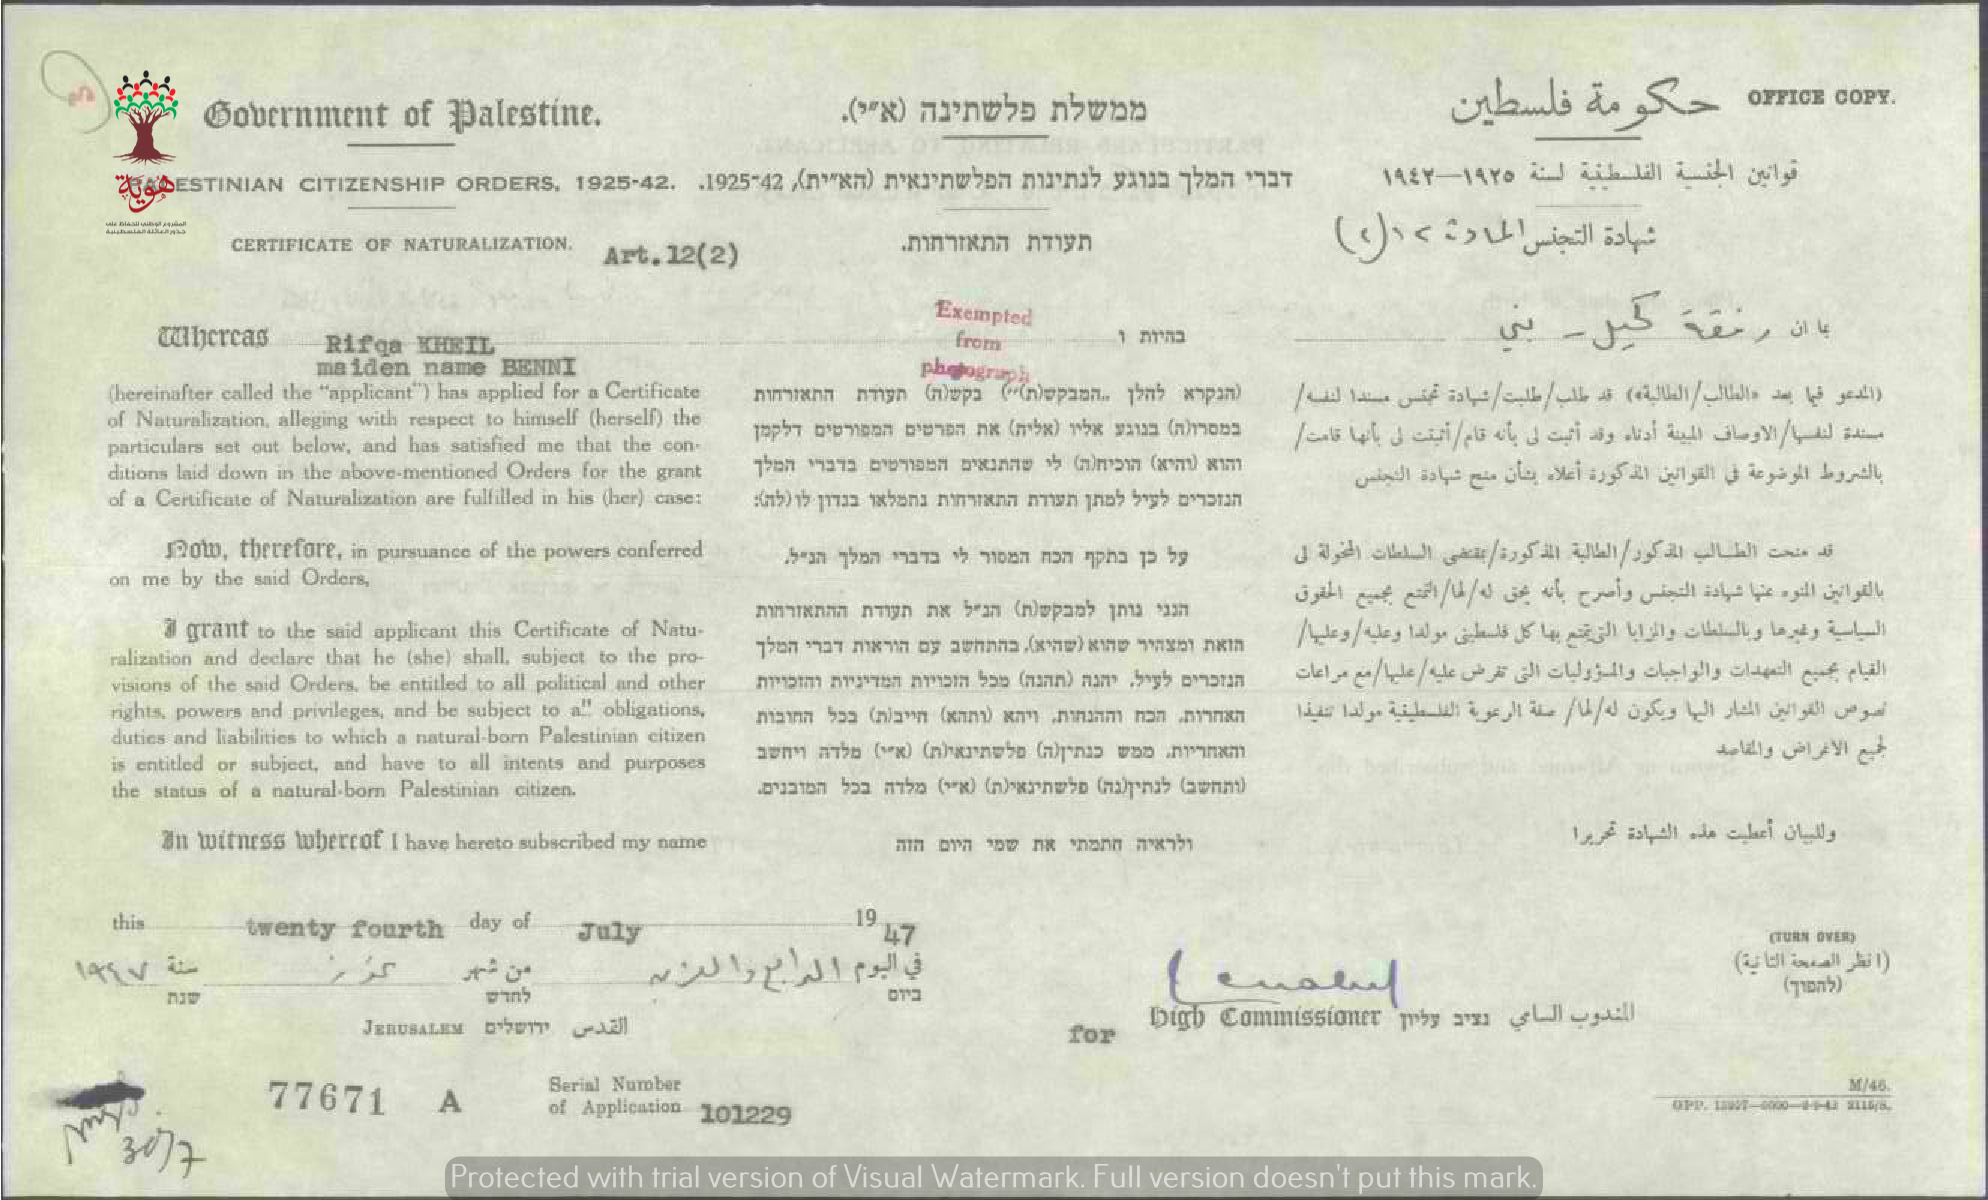 OFFICE COPY.
Government of Palestine.
ממשלת פלשתינה (א״י).
حكومة فلسطين
PALESTINIAN CITIZENSHIP ORDERS, 1925-42.
דברי המלך בנוגע לנתינות הפלשתינאית (הא״ית), 1925-42.
قوانين الجنسية الفلسطينية لسنة ١٩٢٥—١٩٤٢
هوية
المشروع الوطني للحفاظ على
جذور العائلة الفلسطينية
CERTIFICATE OF NATURALIZATION.
Art.12(2)
תעודת התאזרחות.
شهادة التجنس المادة ١٢(٢)
Whereas Rifqa KHEIL
maiden name BENNI
(hereinafter called the "applicant") has applied for a Certificate
of Naturalization, alleging with respect to himself (herself) the
particulars set out below, and has satisfied me that the con-
ditions laid down in the above-mentioned Orders for the grant
of a Certificate of Naturalization are fulfilled in his (her) case:
Now, therefore, in pursuance of the powers conferred
on me by the said Orders,
I grant to the said applicant this Certificate of Natu-
ralization and declare that he (she) shall, subject to the pro-
visions of the said Orders, be entitled to all political and other
rights, powers and privileges, and be subject to all obligations,
duties and liabilities to which a natural-born Palestinian citizen
is entitled or subject, and have to all intents and purposes
the status of a natural-born Palestinian citizen.
In witness whereof I have hereto subscribed my name
Exempted
from
photograph
בהיות ו
(הנקרא להלן ״המבקש(ת)״) בקש(ה) תעודת התאזרחות
במסרו(ה) בנוגע אליו (אליה) את הפרטים המפורטים דלקמן
והוא (והיא) הוכיח(ה) לי שהתנאים המפורטים בדברי המלך
הנזכרים לעיל למתן תעודת התאזרחות נתמלאו בנדון לו(לה):
על כן בתקף הכח המסור לי בדברי המלך הנ״ל.
הנני נותן למבקש(ת) הנ״ל את תעודת ההתאזרחות
הזאת ומצהיר שהוא (שהיא), בהתחשב עם הוראות דברי המלך
הנזכרים לעיל, יהנה (תהנה) מכל הזכויות המדיניות והזכויות
האחרות, הכח וההנחות, ויהא (ותהא) חייב(ת) בכל החובות
והאחריות, ממש כנתין(ה) פלשתינאי(ת) (א״י) מלדה ויחשב
(ותחשב) לנתין(נה) פלשתינאי(ת) (א״י) מלדה בכל המובנים.
ולראיה חתמתי את שמי היום הזה
بما ان رفقة كحيل - بني
(المدعو فيما بعد «الطالب/الطالبة») قد طلب/طلبت/شهادة تجنس مسندا لنفسه/
مسندة لنفسها/الاوصاف المبينة أدناه وقد أثبت لي بأنه قام/أثبتت لي بأنها قامت/
بالشروط الموضوعة في القوانين المذكورة أعلاه بشأن منح شهادة التجنس
قد منحت الطالب المذكور/الطالبة المذكورة/بمقتضى السلطات المخولة لي
بالقوانين المنوه عنها شهادة التجنس وأصرح بأنه يحق له/لها/التمتع بجميع الحقوق
السياسية وغيرها وبالسلطات والمزايا التي يتمتع بها كل فلسطيني مولدا وعليه/وعليها/
القيام بجميع التعهدات والواجبات والمسؤوليات التي تفرض عليه/عليها/مع مراعات
نصوص القوانين المشار اليها ويكون له/لها/ صفة الرعوية الفلسطينية مولدا تنفيذا
لجميع الاغراض والمقاصد
وللبيان أعطيت هذه الشهادة تحريرا
this twenty fourth day of July 1947
في اليوم الرابع والعشرين من شهر تموز سنة ١٩٤٧
ביום לחדש שנת
JERUSALEM ירושלים القدس
for High Commissioner נציב עליון المندوب السامي
(TURN OVER)
(انظر الصفحة الثانية)
(להפוך)
77671 A
Serial Number
of Application 101229
30/7
M/46.
Protected with trial version of Visual Watermark. Full version doesn't put this mark.